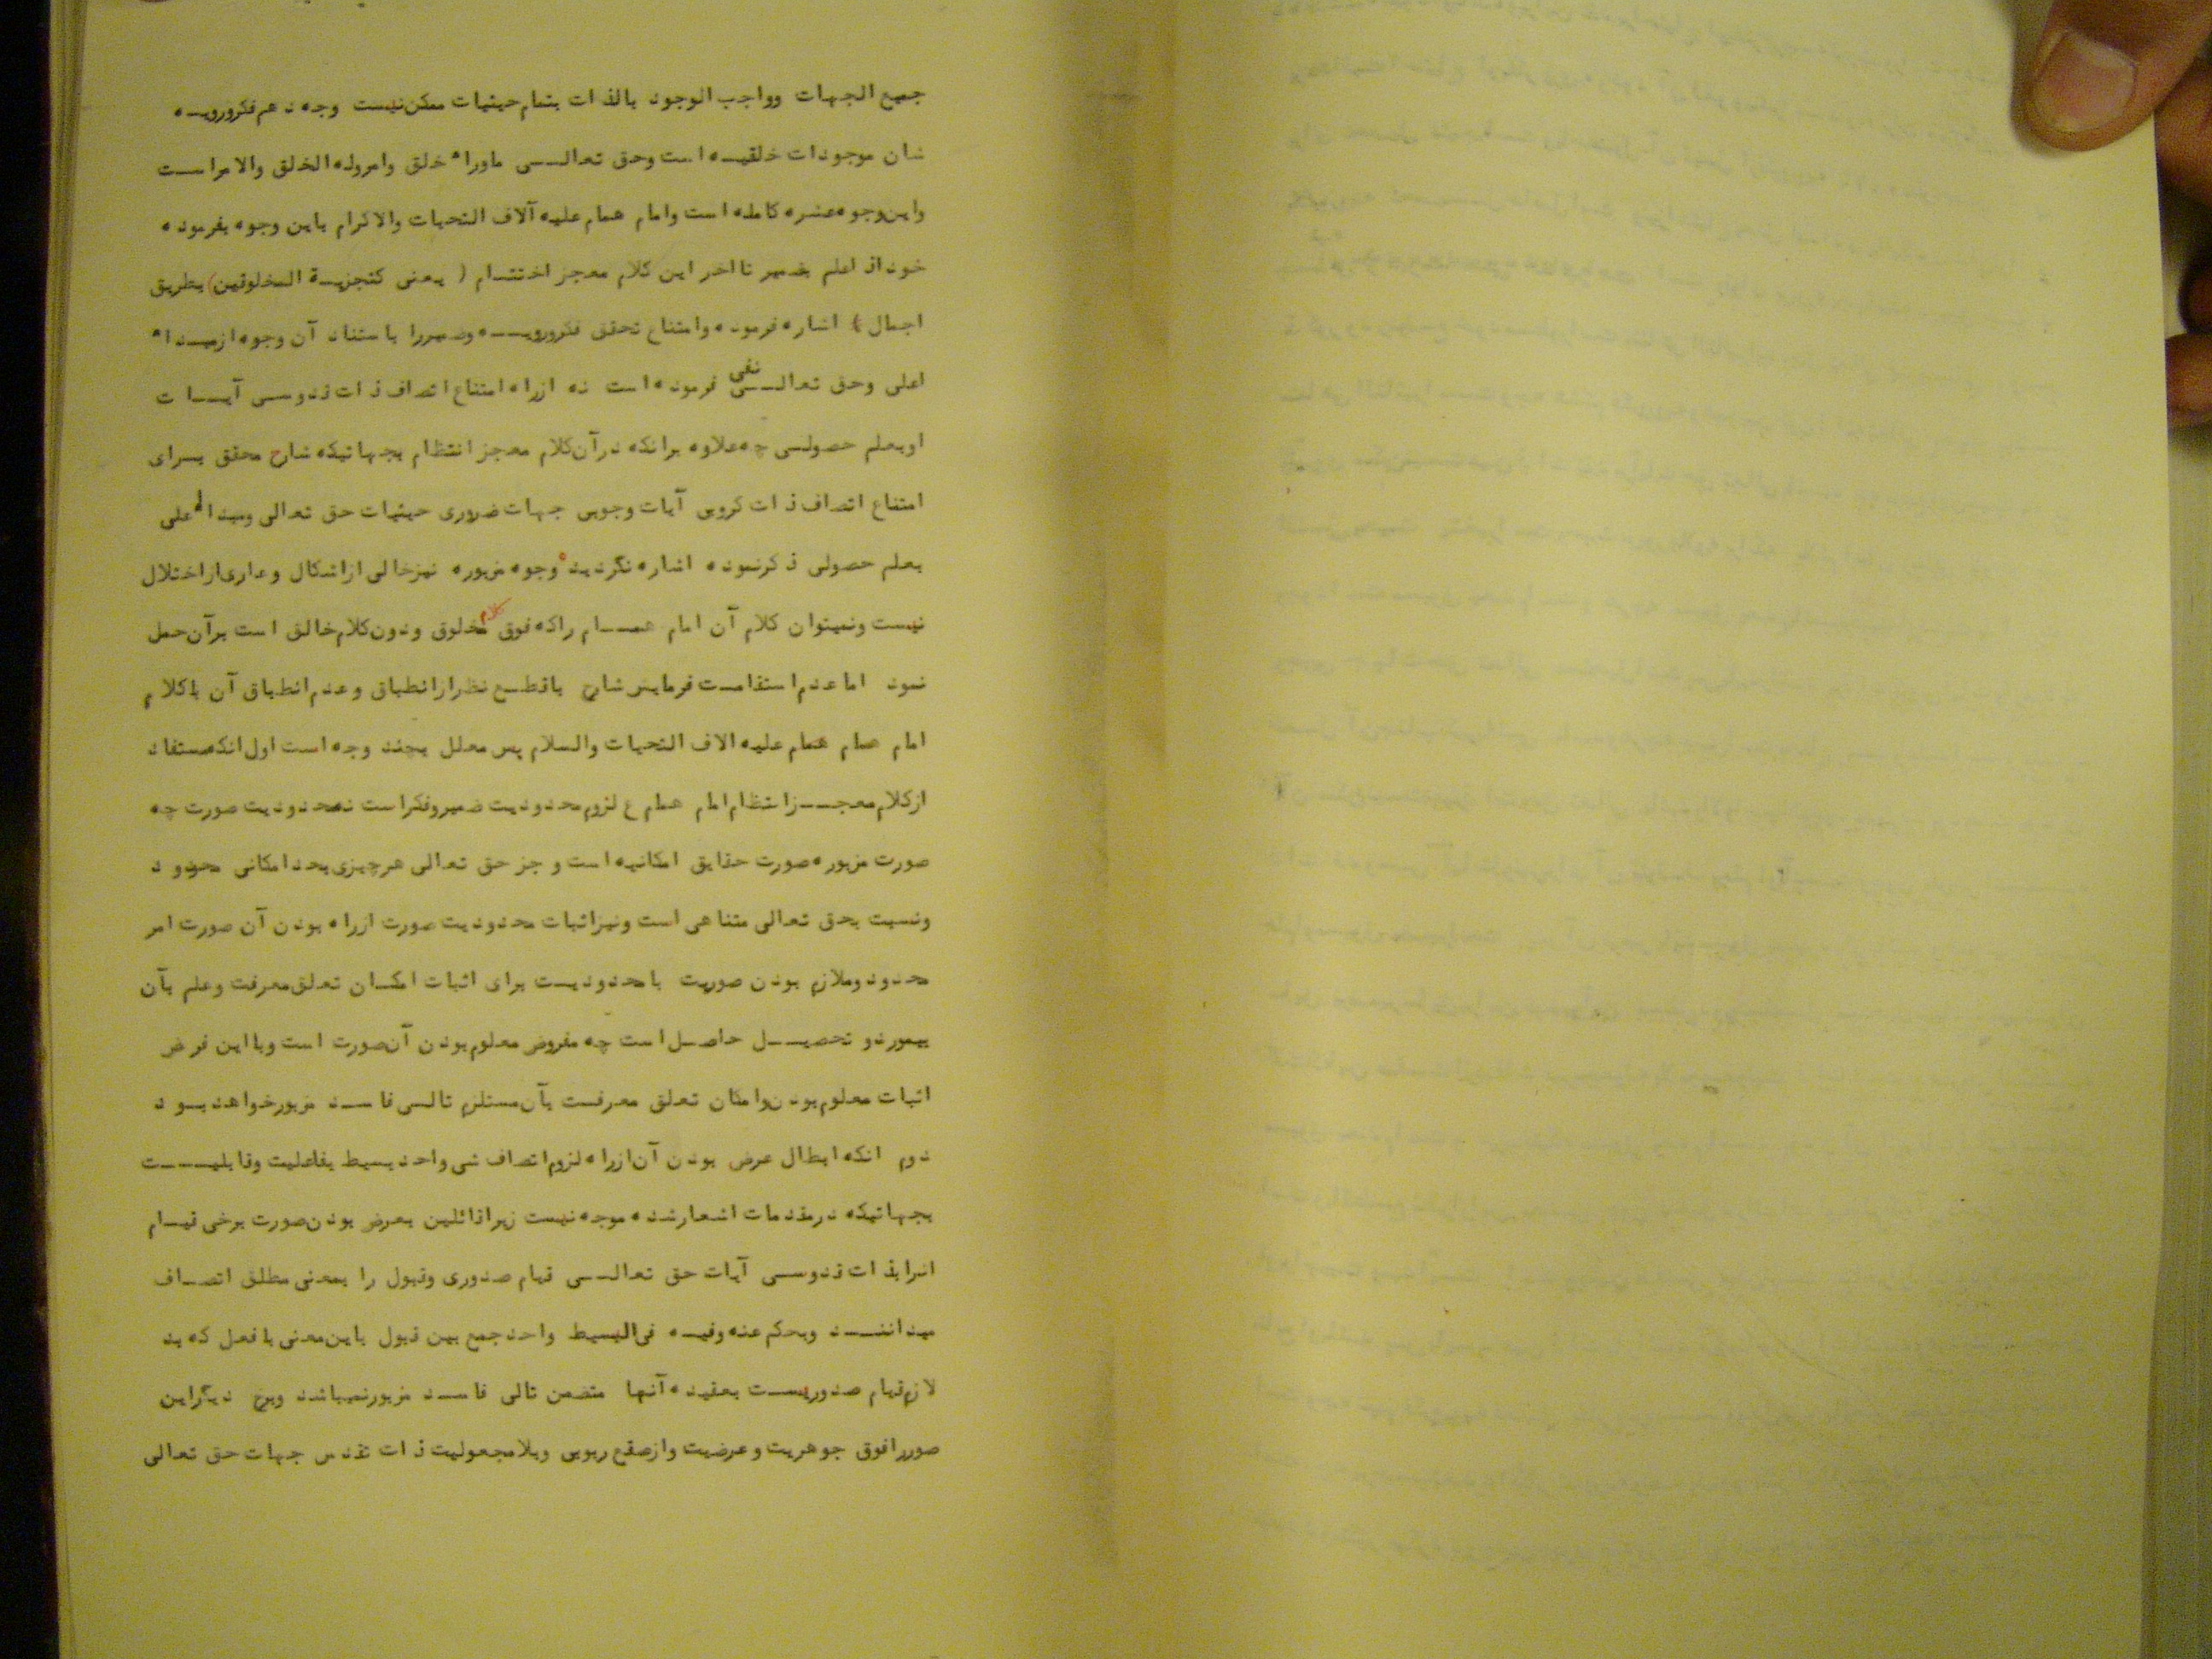 جمیع الجهات وواجب الوجود بالذات بتمام حیثیات ممکن نیست وجه دهم فکر ورویه
شان موجودات خلقیه است وحق تعالی ماوراء خلق وامر وله الخلق والامر است
واین وجوه عشره کامله است وامام همام علیه آلاف التحیات والاکرام باین وجوه بفرموده
خود از اعلم بضمیر تا اخر این کلام معجز اختتام ( یعنی کتجزیة المخلوقین) بطریق
اجمال ) اشاره فرموده وامتناع تحقق فکر ورویه وضمیر را باستناد آن وجوه ازمبداء
اعلی وحق تعالی نفی فرموده است نه ازراه امتناع اتصاف ذات قدوسی آیات
اوبعلم حصولی چه علاوه برانکه درآن کلام معجز انتظام بجهاتیکه شارح محقق برای
امتناع اتصاف ذات کروبی آیات وجوبی جهات ضروری حیثیات حق تعالی ومبداء اعلی
بعلم حصولی ذکر نموده اشاره نگردیده وجوه مزبوره نیز خالی ازاشکال وعاری ازاختلال
نیست ونمیتوان کلام آن امام همام راکه فوق کلام مخلوق ودون کلام خالق است برآن حمل
نمود اما عدم استقامت فرمایش شارح باقطع نظر ازانطباق وعدم انطباق آن باکلام
امام همام همام علیه الاف التحیات والسلام پس معلل بچند وجه است اول انکه مستفاد
ازکلام معجز انتظام امام همام ع لزوم محدودیت ضمیر وفکر است نه محدودیت صورت چه
صورت مزبوره صورت حقایق امکانیه است و جز حق تعالی هرچیزی بحد امکانی محدود
ونسبت بحق تعالی متناهی است ونیز اثبات محدودیت صورت ازراه بودن آن صورت امر
محدود وملازم بودن صورت با محدودیت برای اثبات امکان تعلق معرفت وعلم بآن
بیمورد و تحصیل حاصل است چه مفروض معلوم بودن آن صورت است وبا این فرض
اثبات معلوم بودن وامکان تعلق معرفت بآن مستلزم تالی فاسد مزبور خواهد بود
دوم انکه ابطال عرض بودن آن ازراه لزوم اتصاف شی واحد بسیط بفاعلیت وقابلیت
بجهاتیکه درمقدمات اشعار شده موجه نیست زیرا قائلین بعرض بودن صورت برخی قیام
انرا بذات قدوسی آیات حق تعالی قیام صدوری وقبول را بمعنی مطلق اتصاف
میدانند وبحکم عنه وفیه فی البسیط واحد جمع بین قبول باین معنی با فعل که بد
لازم قیام صدوریست بعقیده آنها متضمن تالی فاسد مزبور نمیباشد وبرخ دیگر این
صور را فوق جوهریت وعرضیت وازصقع ربوبی وبلامجعولیت ذات تقدس جهات حق تعالی